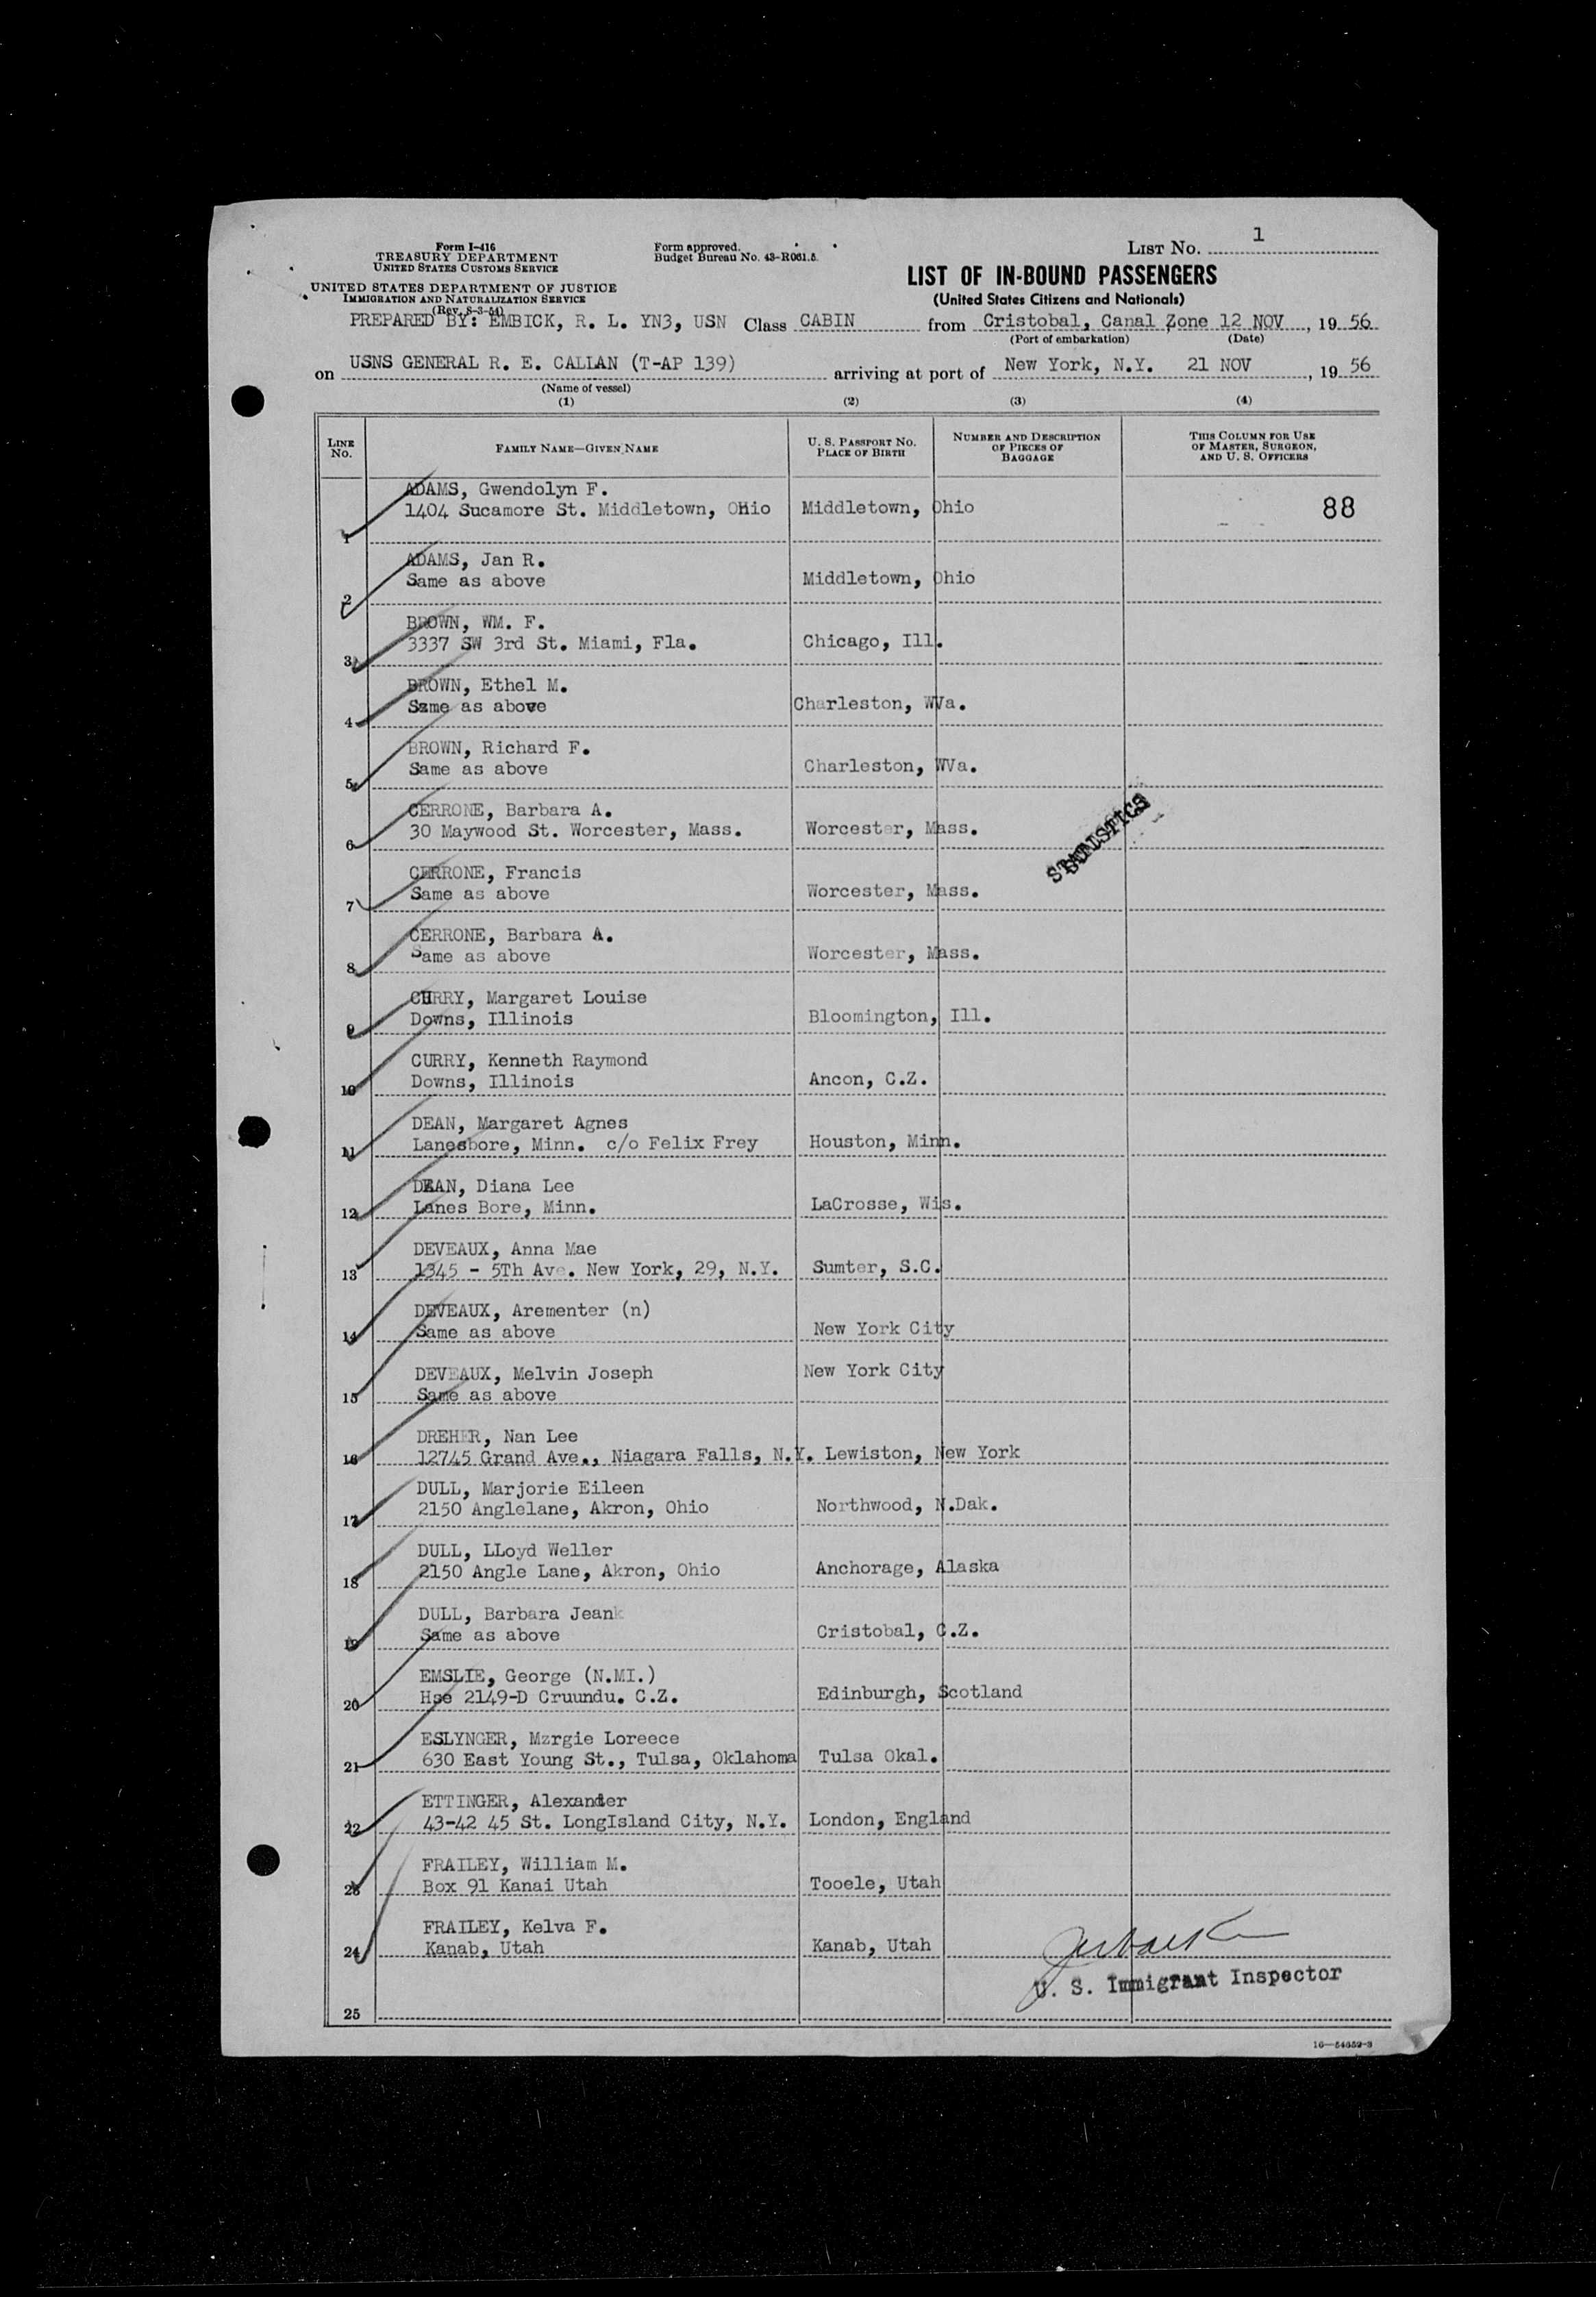 Form I-416
TREASURY DEPARTMENT
UNITED STATES CUSTOMS SERVICE
UNITED STATES DEPARTMENT OF JUSTICE
IMMIGRATION AND NATURALIZATION SERVICE
(Rev. 8-3-54)
Form approved.
Budget Bureau No. 43-R061.5.
LIST NO. 1
LIST OF IN-BOUND PASSENGERS
(United States Citizens and Nationals)
PREPARED BY: EMBICK, R. L. YN3, USN Class CABIN from Cristobal, Canal Zone 12 NOV, 19 56
(Port of embarkation) (Date)
on USNS GENERAL R. E. CALLAN (T-AP 139) arriving at port of New York, N.Y. 21 NOV, 19 56
(Name of vessel)
(1) (2) (3) (4)
LINE NO. FAMILY NAME—GIVEN NAME U. S. PASSPORT NO. PLACE OF BIRTH NUMBER AND DESCRIPTION OF PIECES OF BAGGAGE THIS COLUMN FOR USE OF MASTER, SURGEON, AND U. S. OFFICERS
ADAMS, Gwendolyn F.
1 1404 Sucamore St. Middletown, Ohio Middletown, Ohio 88
ADAMS, Jan R.
2 Same as above Middletown, Ohio
BROWN, WM. F.
3 3337 SW 3rd St. Miami, Fla. Chicago, Ill.
BROWN, Ethel M.
4 Same as above Charleston, WVa.
BROWN, Richard F.
5 Same as above Charleston, WVa.
CERRONE, Barbara A.
6 30 Maywood St. Worcester, Mass. Worcester, Mass.
STATISTICS
CERRONE, Francis
7 Same as above Worcester, Mass.
CERRONE, Barbara A.
8 Same as above Worcester, Mass.
CURRY, Margaret Louise
9 Downs, Illinois Bloomington, Ill.
CURRY, Kenneth Raymond
10 Downs, Illinois Ancon, C.Z.
DEAN, Margaret Agnes
11 Lanesbore, Minn. c/o Felix Frey Houston, Minn.
DEAN, Diana Lee
12 Lanes Bore, Minn. LaCrosse, Wis.
DEVEAUX, Anna Mae
13 1345 - 5Th Ave. New York, 29, N.Y. Sumter, S.C.
DEVEAUX, Arementer (n)
14 Same as above New York City
DEVEAUX, Melvin Joseph New York City
15 Same as above
DREHER, Nan Lee
16 12745 Grand Ave., Niagara Falls, N.Y. Lewiston, New York
DULL, Marjorie Eileen
17 2150 Anglelane, Akron, Ohio Northwood, N.Dak.
DULL, LLoyd Weller
18 2150 Angle Lane, Akron, Ohio Anchorage, Alaska
DULL, Barbara Jean
19 Same as above Cristobal, C.Z.
EMSLIE, George (N.MI.)
20 Hse 2149-D Cruundu. C.Z. Edinburgh, Scotland
ESLYNGER, Mzrgie Loreece
21 630 East Young St., Tulsa, Oklahoma Tulsa Okal.
ETTINGER, Alexander
22 43-42 45 St. LongIsland City, N.Y. London, England
FRAILEY, William M.
23 Box 91 Kanai Utah Tooele, Utah
FRAILEY, Kelva F.
24 Kanab, Utah Kanab, Utah
U. S. Immigrant Inspector
25
16—54652-3